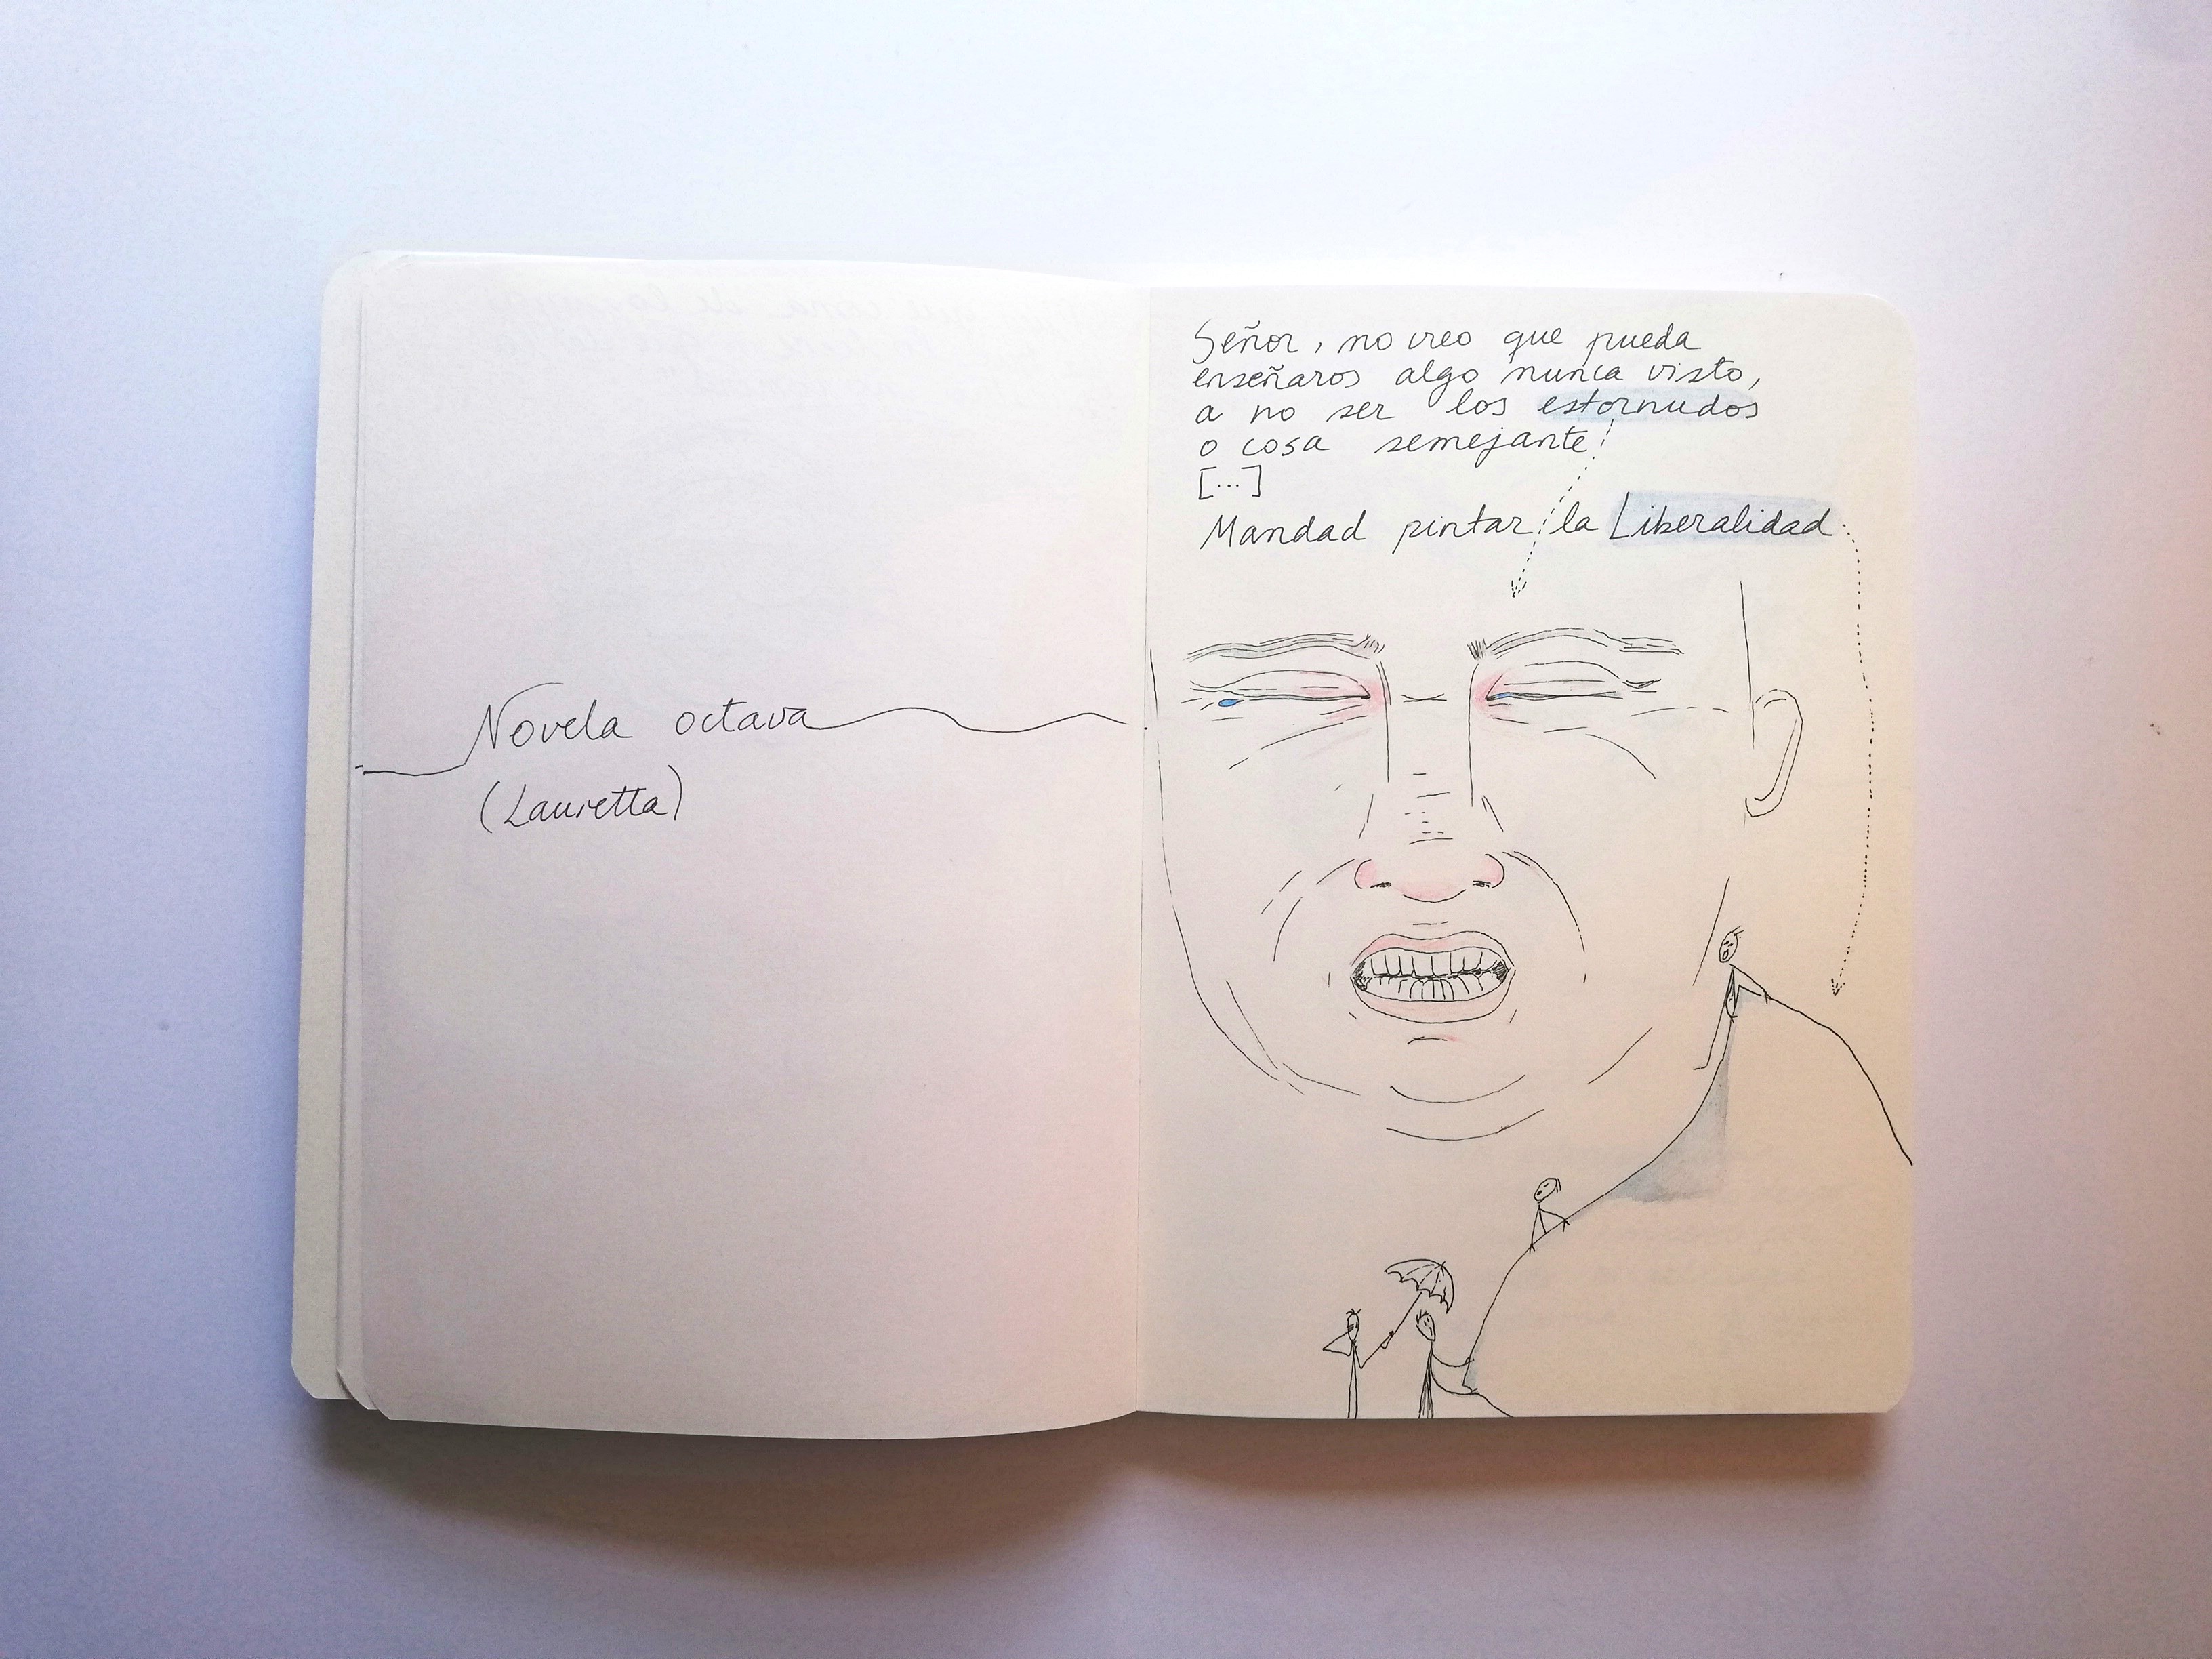 Novela octava
(Lauretta)
Señor, no creo que pueda
enseñaros algo nunca visto,
a no ser los estornudos
o cosa semejante
[...]
Mandad pintar la Liberalidad